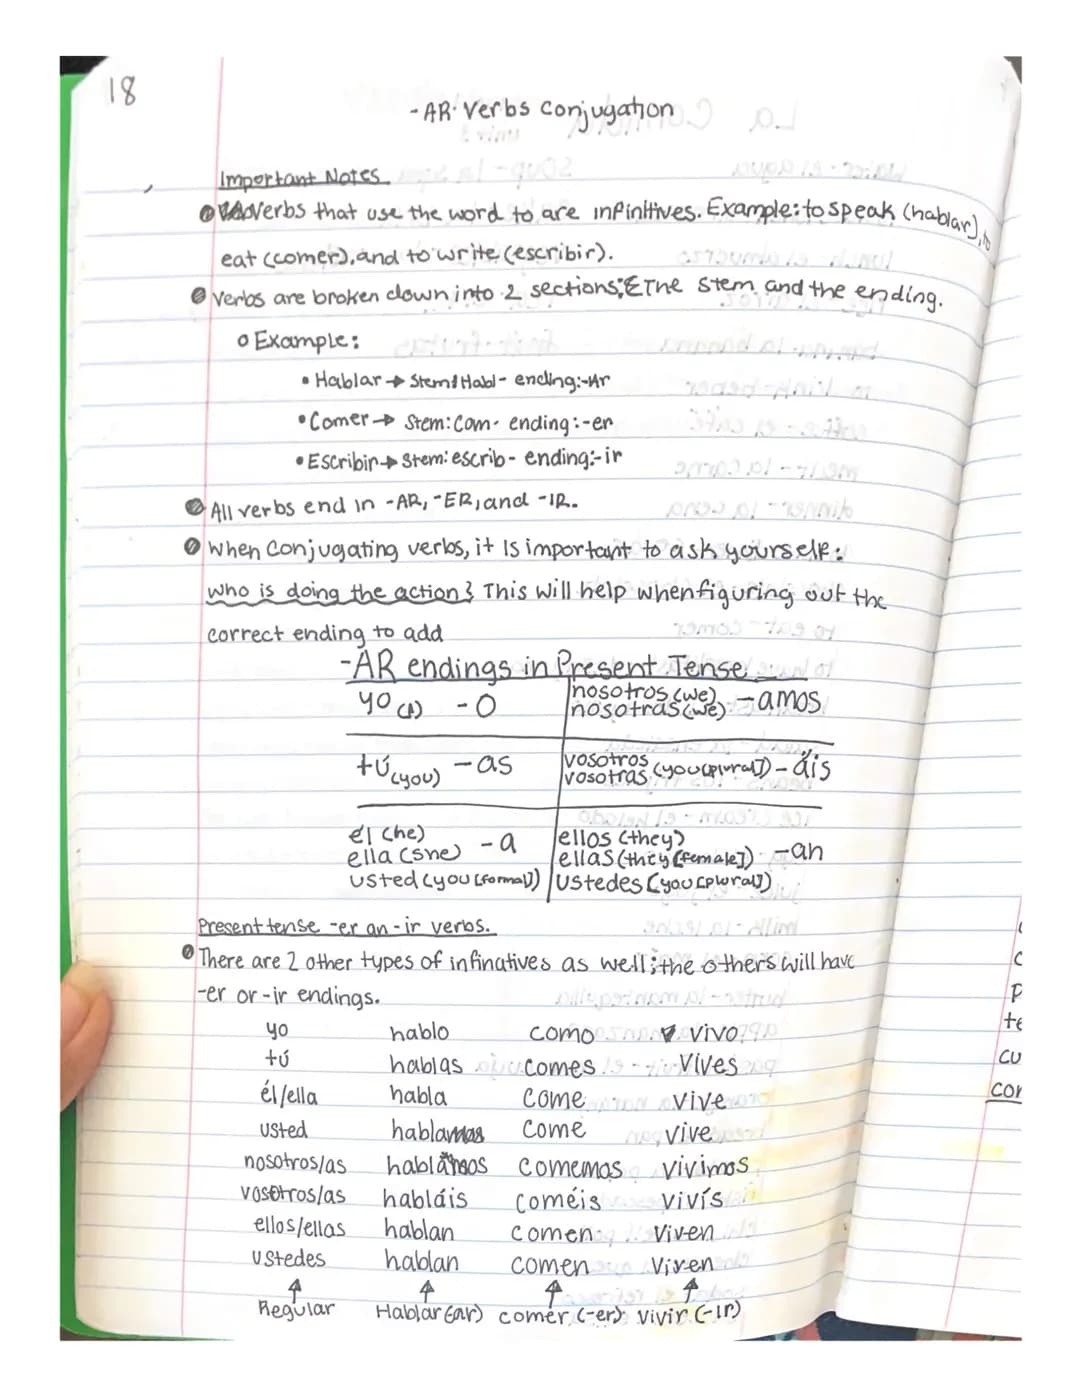 18
-AR Verbs Conjugation
Important Notes
Verbs that use the word to are infinitives. Example: to speak (hablar), to
eat (comer), and to write (escribir).
Verbs are broken down into 2 sections; The Stem and the ending.
Example:
Hablar → Stem: Habl- ending:-Ar
Comer → Stem: Com- ending:-er
Escribir → Stem: escrib- ending:-ir
All verbs end in -AR, -ER, and -IR.
When Conjugating verbs, it is important to ask yourself:
Who is doing the action? This will help when figuring out the
correct ending to add
-AR endings in Present Tense
yo (I) -O
nosotros (we) -amos
nosotras (we)
tú (you) -as
vosotros (you [plural]) -áis
vosotras
él (he) -a
ella (she)
usted (you [formal])
ellos (they) -an
ellas (they [female])
ustedes (you [plural])
Present tense -er an -ir verbs.
There are 2 other types of infinatives as well; the others will have
-er or -ir endings.
yo hablo como vivo
tú hablas comes vives
él/ella habla come vive
usted come vive
nosotros/as comemos vivimos
vosotros/as habláis coméis vivís
ellos/ellas hablan comen viven
ustedes hablan comen viven
↑ ↑ ↑ ↑
Regular Hablar (-ar) comer (-er) vivir (-ir)
c
p
te
cu